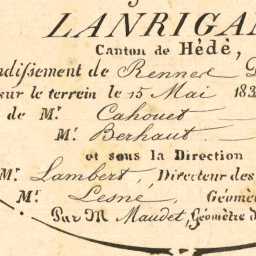 LANRIGAN
Canton de Hédé,
ndissement de Rennes D
sur le terrein le 15 Mai 183
de Mr. Cahouet
Mr. Berhaut
et sous la Direction
Mr. Lambert, Directeur des
Mr. Lesné, Géomè
Par M Maudet, Géomètre d